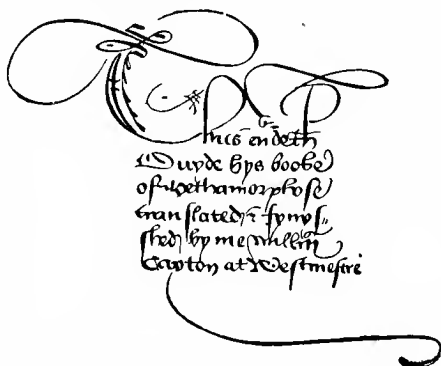 Thus endeth
Ouyde hys booke
of Methamorphose
translated & fynys-
shed by me Willm̄
Caxton at Westmestre